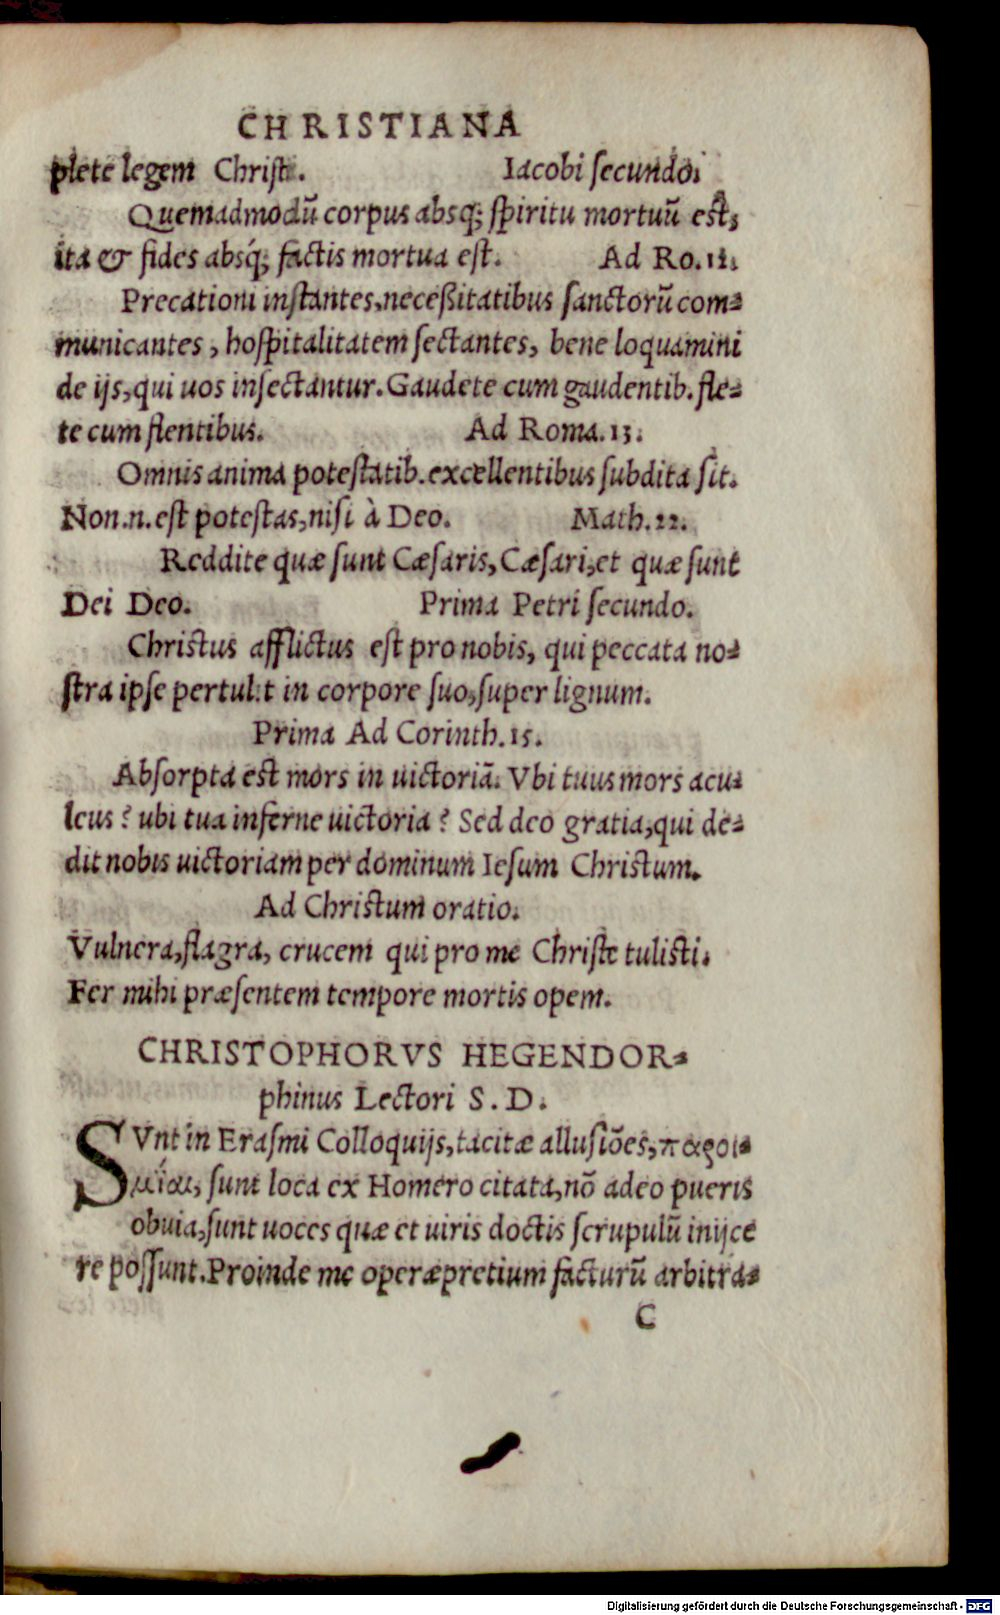 CHRISTIANA
plete legem Christi. Iacobi secundo:
Quemadmodū corpus absq; spiritu mortuū est,
ita & fides absq́; factis mortua est. Ad Ro.12.
Precationi instantes,neceßitatibus sanctorū com=
municantes, hospitalitatem sectantes, bene loquamini
de ijs,qui uos insectantur. Gaudete cum gaudentib. fle=
te cum flentibus. Ad Roma.13.
Omnis anima potestatib.excellentibus subdita sit.
Non.n.est potestas,nisi à Deo. Math.22.
Reddite quæ sunt Cæsaris, Cæsari,et quæ sunt
Dei Deo. Prima Petri secundo.
Christus afflictus est pro nobis, qui peccata no=
stra ipse pertulit in corpore suo,super lignum.
Prima Ad Corinth.15.
Absorpta est mors in uictoriā. Vbi tuus mors acu=
leus? ubi tua inferne uictoria? Sed deo gratia,qui de=
dit nobis uictoriam per dominum Iesum Christum.
Ad Christum oratio.
Vulnera,flagra, crucem qui pro me Christe tulisti.
Fer mihi præsentem tempore mortis opem.
CHRISTOPHORVS HEGENDOR=
phinus Lectori S.D.
SVnt in Erasmi Colloquijs,tacitæ allusiōes,παροι=
μίαι, sunt loca ex Homero citata,nō adeo pueris
obuia,sunt uoces quæ et uiris doctis scrupulū inijce
re possunt.Proinde me operæpretium facturū arbitra=
C
Digitalisierung gefördert durch die Deutsche Forschungsgemeinschaft - DFG